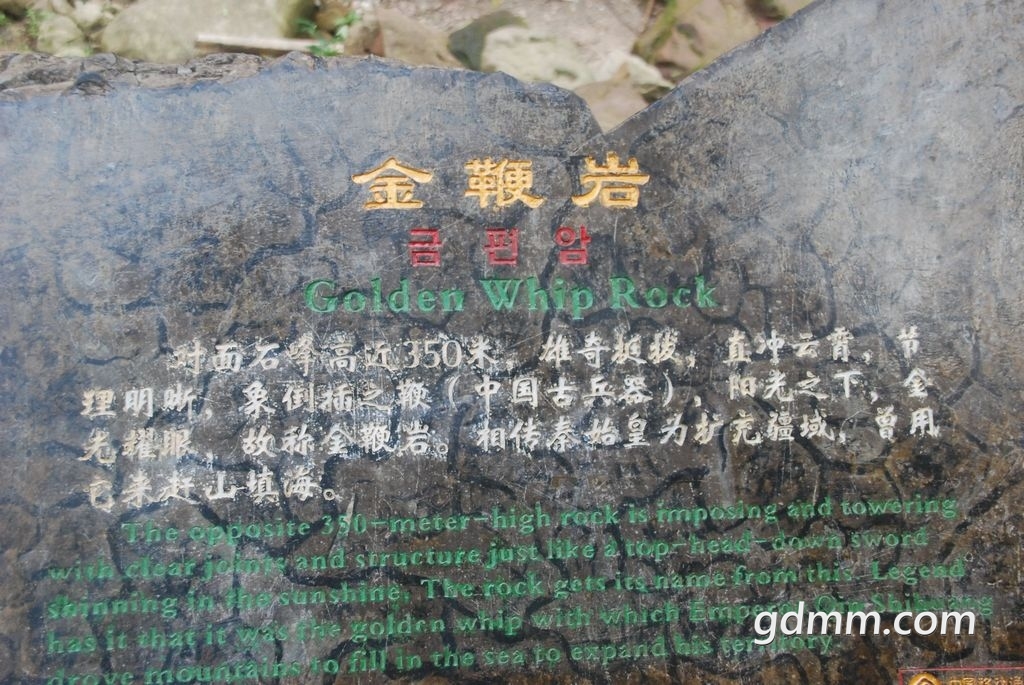 金鞭岩
금편암
Golden Whip Rock
对面石峰高近350米，雄奇挺拔，直冲云霄，节
理明晰，象倒插之鞭（中国古兵器），阳光之下，金
光耀眼，故称金鞭岩。相传秦始皇为扩充疆域，曾用
它来赶山填海。
The opposite 350-meter-high rock is imposing and towering
with clear joints and structure just like a top-head-down sword
shinning in the sunshine. The rock gets its name from this. Legend
has it that it was the golden whip with which Emperor Qin Shihuang
drove mountains to fill in the sea to expand his territory.
gdmm.com